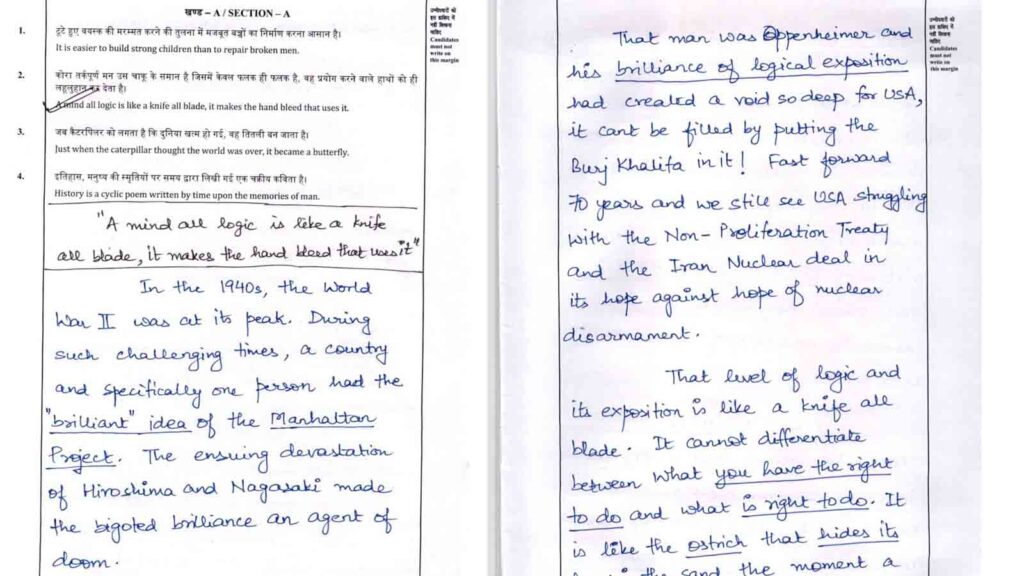 खण्ड – A / SECTION – A
1. टूटे हुए वयस्क की मरम्मत करने की तुलना में मजबूत बच्चों का निर्माण करना आसान है।
It is easier to build strong children than to repair broken men.
2. कोरा तर्कपूर्ण मन उस चाकू के समान है जिसमें केवल फलक ही फलक है, वह प्रयोग करने वाले हाथों को ही
लहूलुहान कर देता है।
A mind all logic is like a knife all blade, it makes the hand bleed that uses it.
3. जब कैटरपिलर को लगता है कि दुनिया खत्म हो गई, वह तितली बन जाता है।
Just when the caterpillar thought the world was over, it became a butterfly.
4. इतिहास, मनुष्य की स्मृतियों पर समय द्वारा लिखी गई एक चक्रीय कविता है।
History is a cyclic poem written by time upon the memories of man.
उम्मीदवारों को
इस हाशिए में
नहीं लिखना
चाहिए
Candidates
must not
write on
this margin
"A mind all logic is like a knife
all blade, it makes the hand bleed that uses it"
In the 1940s, the World
War II was at its peak. During
such challenging times, a country
and specifically one person had the
"brilliant" idea of the Manhattan
Project. The ensuing devastation
of Hiroshima and Nagasaki made
the bigoted brilliance an agent of
doom.
That man was Oppenheimer and
his brilliance of logical exposition
had created a void so deep for USA,
it cant be filled by putting the
Burj Khalifa in it! Fast forward
70 years and we still see USA struggling
with the Non-Proliferation Treaty
and the Iran Nuclear deal in
its hope against hope of nuclear
disarmament.
That level of logic and
its exposition is like a knife all
blade. It cannot differentiate
between what you have the right
to do and what is right to do. It
is like the ostrich that hides its
the sand the moment a
उम्मीदवारों को
इस हाशिए में
नहीं लिखना
चाहिए
Candidates
must not
write on
this margin